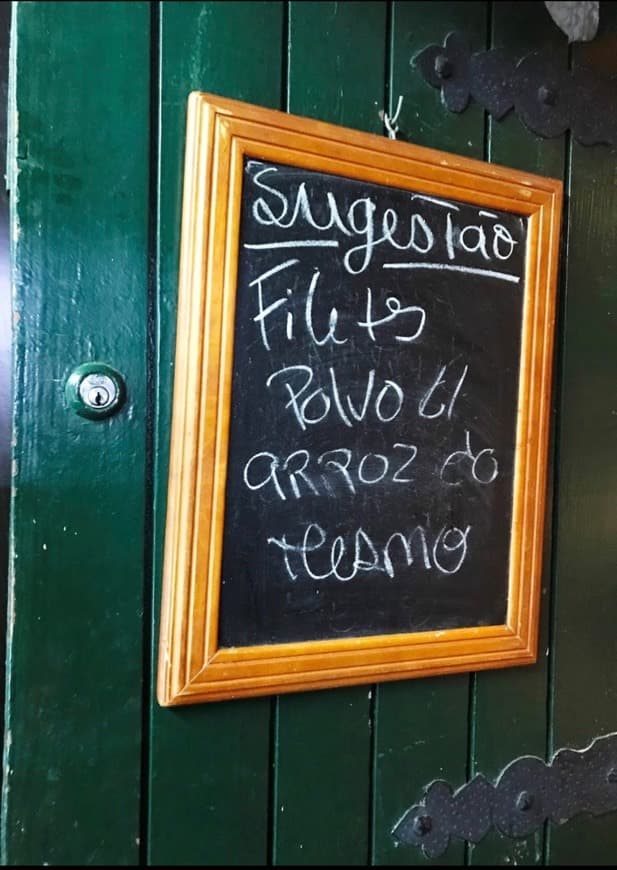 Sugestão
Filetes
Polvo c/
arroz do
mesmo